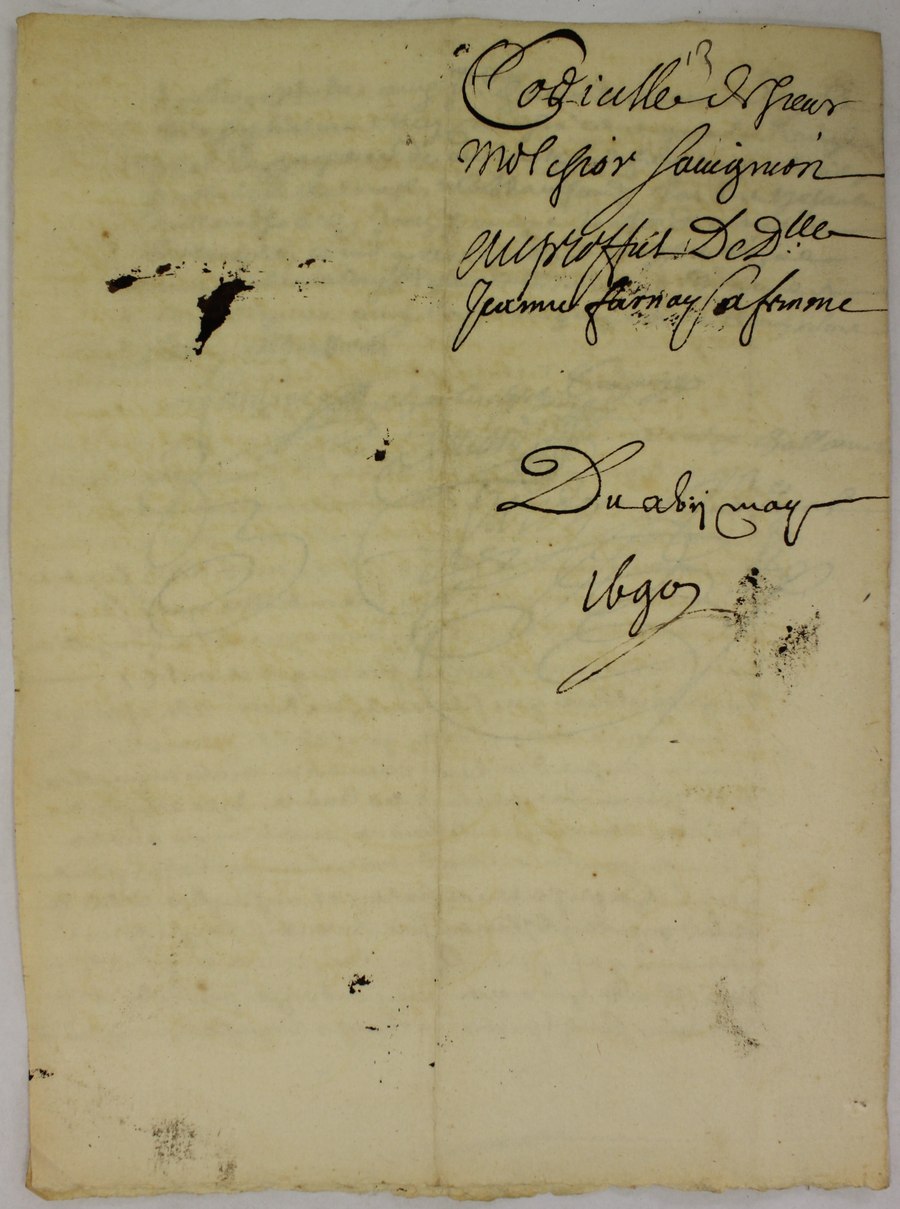 13
Codicille de sieur
Melchior Sauvignon
Au proffit De Dlle
Jeanne farnay Sa femme
Du xvij may
1690